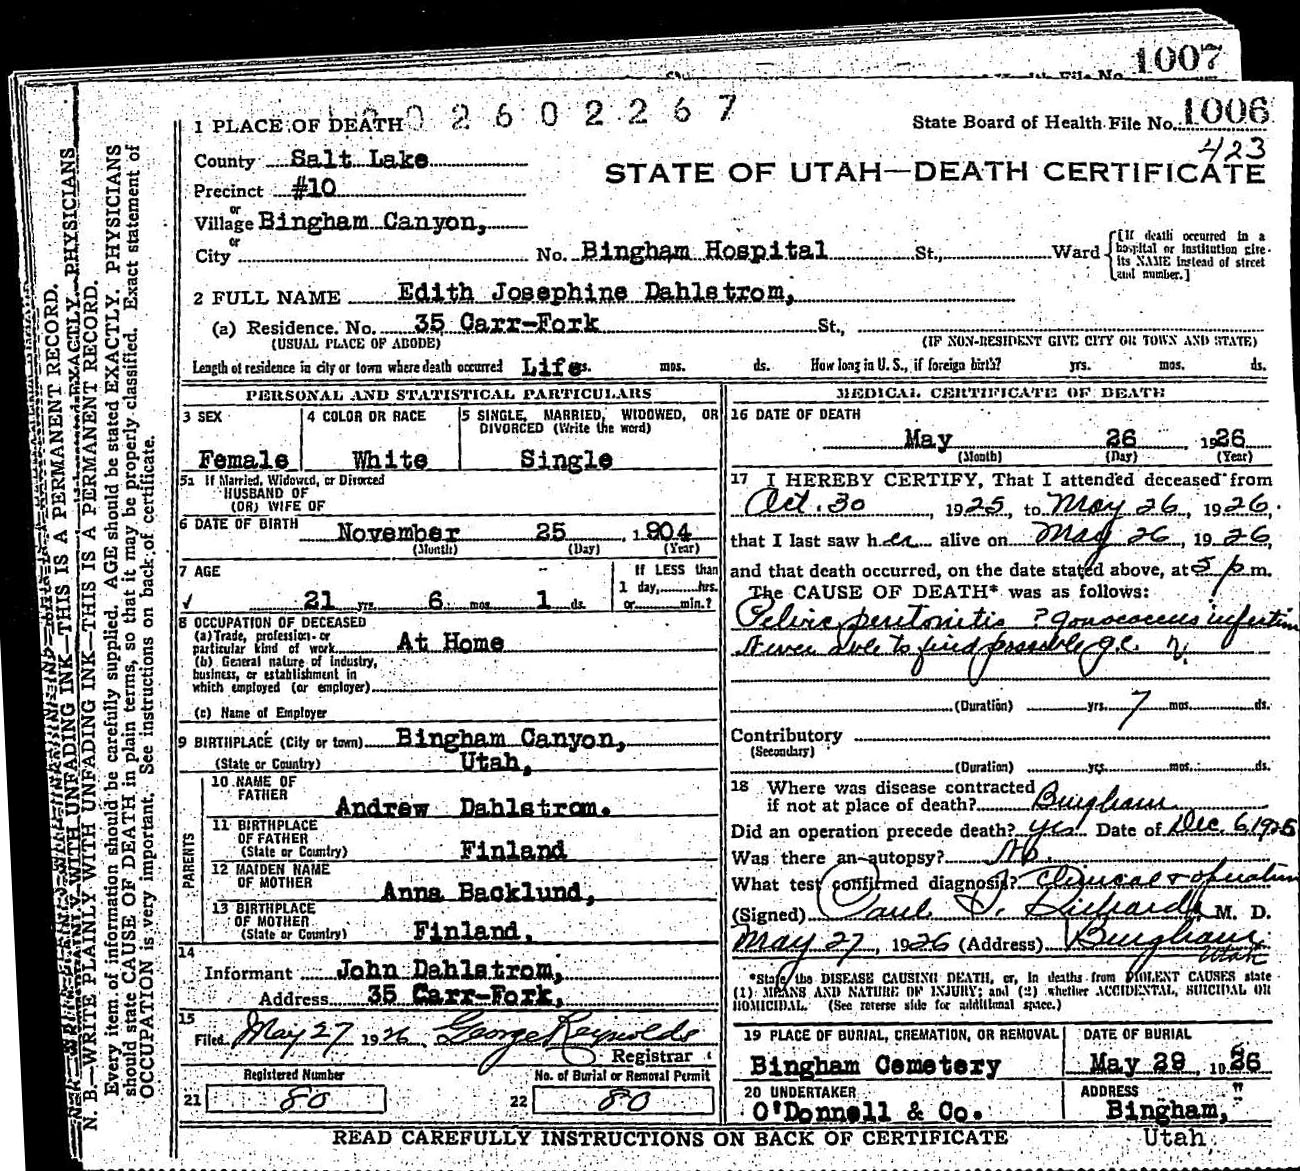 1007
1006
State Board of Health File No.
423
0 2 6 0 2 2 6 7
1 PLACE OF DEATH
STATE OF UTAH—DEATH CERTIFICATE
County Salt Lake
Precinct #10
or
Village Bingham Canyon,
or
City No. Bingham Hospital St., Ward
[If death occurred in a hospital or institution give its NAME instead of street and number.]
2 FULL NAME Edith Josephine Dahlstrom,
(a) Residence. No. 35 Carr-Fork St.,
(USUAL PLACE OF ABODE) (IF NON-RESIDENT GIVE CITY OR TOWN AND STATE)
Length of residence in city or town where death occurred Life mos. ds. How long in U. S., if foreign birth? yrs. mos. ds.
PERSONAL AND STATISTICAL PARTICULARS
3 SEX
Female
4 COLOR OR RACE
White
5 SINGLE, MARRIED, WIDOWED, OR
DIVORCED (Write the word)
Single
5a If Married, Widowed, or Divorced
HUSBAND OF
(OR) WIFE OF
6 DATE OF BIRTH November 25, 1904
(Month) (Day) (Year)
7 AGE
21 yrs. 6 mos. 1 ds.
If LESS than
1 day, hrs.
or min.?
8 OCCUPATION OF DECEASED
(a) Trade, profession or
particular kind of work At Home
(b) General nature of industry,
business, or establishment in
which employed (or employer)
(c) Name of Employer
9 BIRTHPLACE (City or town) Bingham Canyon,
(State or Country) Utah,
PARENTS
10 NAME OF
FATHER
Andrew Dahlstrom.
11 BIRTHPLACE
OF FATHER
(State or Country) Finland
12 MAIDEN NAME
OF MOTHER
Anna Backlund,
13 BIRTHPLACE
OF MOTHER
(State or Country) Finland,
14
Informant John Dahlstrom,
Address 35 Carr-Fork,
15
Filed May 27 1926 George Reynolds
Registrar
Registered Number No. of Burial or Removal Permit
21 80 22 80
MEDICAL CERTIFICATE OF DEATH
16 DATE OF DEATH
May 26 1926
(Month) (Day) (Year)
17 I HEREBY CERTIFY, That I attended deceased from
Oct. 30, 1925, to May 26, 1926,
that I last saw her alive on May 26, 1926,
and that death occurred, on the date stated above, at 5 p m.
The CAUSE OF DEATH* was as follows:
Pelvic peritonitis ? gonococcus infection
Never able to find possible g.c.
(Duration) yrs. 7 mos. ds.
Contributory
(Secondary)
(Duration) yrs. mos. ds.
18 Where was disease contracted
if not at place of death? Bingham
Did an operation precede death? yes Date of Dec 6 1925
Was there an autopsy? No.
What test confirmed diagnosis? Clinical & operation
(Signed) Paul S. Richards M. D.
May 27, 1926 (Address) Bingham Utah
*State the DISEASE CAUSING DEATH, or, in deaths from VIOLENT CAUSES state
(1) MEANS AND NATURE OF INJURY; and (2) whether ACCIDENTAL, SUICIDAL OR
HOMICIDAL. (See reverse side for additional space.)
19 PLACE OF BURIAL, CREMATION, OR REMOVAL
Bingham Cemetery
DATE OF BURIAL
May 29, 1926
20 UNDERTAKER
O'Donnell & Co.
ADDRESS
Bingham, "
Utah
READ CAREFULLY INSTRUCTIONS ON BACK OF CERTIFICATE
N. B.—WRITE PLAINLY WITH UNFADING INK—THIS IS A PERMANENT RECORD.
Every item of information should be carefully supplied. AGE should be stated EXACTLY. PHYSICIANS
should state CAUSE OF DEATH in plain terms, so that it may be properly classified. Exact statement of
OCCUPATION is very important. See instructions on back of certificate.